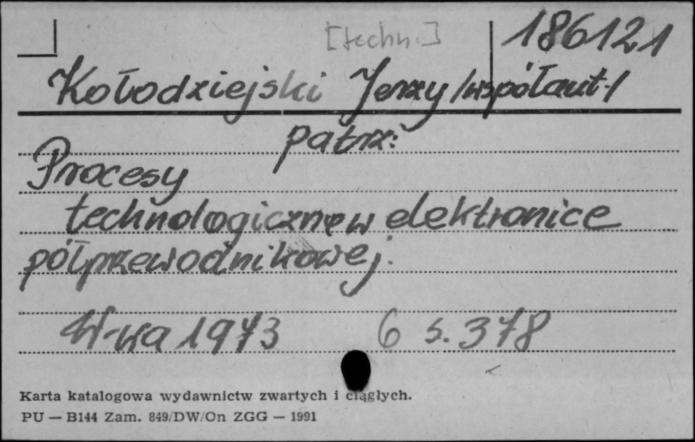 [techn.] 186121
Kołodziejski Jerzy /współaut./
patrz:
Procesy
technologiczne w elektronice
półprzewodnikowej.
W-wa 1973 6 s. 378
Karta katalogowa wydawnictw zwartych i ciągłych.
PU — B144 Zam. 849/DW/On ZGG — 1991